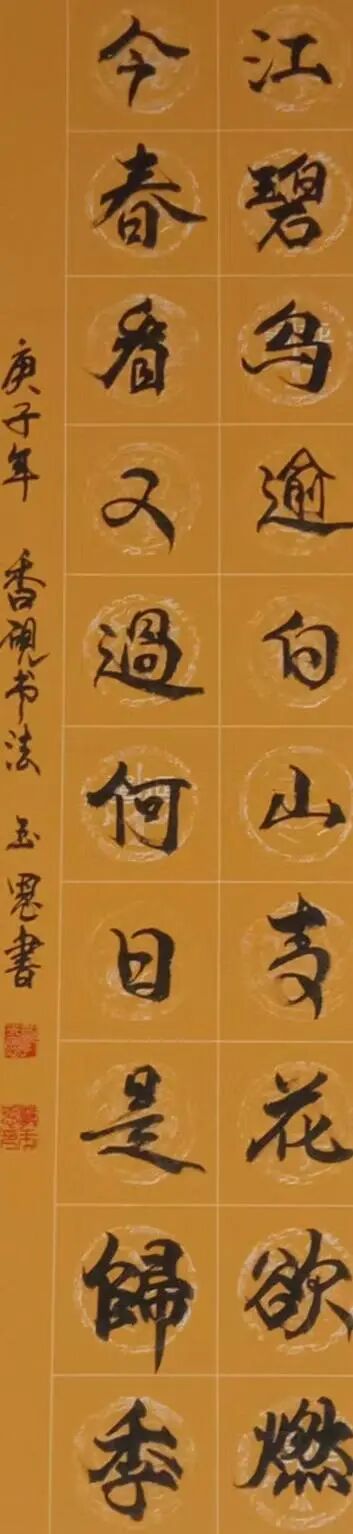 江碧鸟逾白山青花欲燃
今春看又過何日是歸秊
庚子年 香砚书法 玉恩書